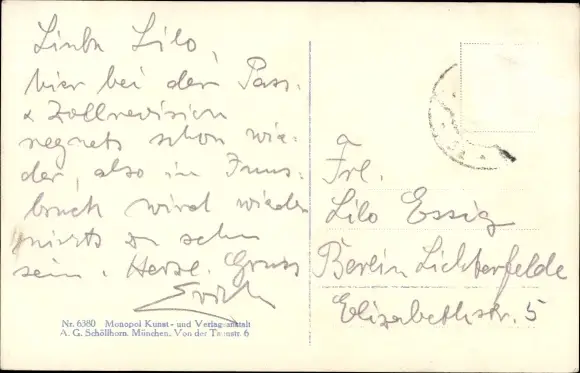 Liebe Lilo,
hier bei der Pass-
& Zollrevision
regnets schon wie-
der, also in Inns-
bruck wird wieder
nichts zu sehn
sein. Herzl. Gruss
Erich
Nr. 6380 Monopol Kunst- und Verlagsanstalt
A. G. Schöllhorn. München. Von der Tannstr. 6
Frl.
Lilo Essig
Berlin Lichterfelde
Elizabethstr. 5